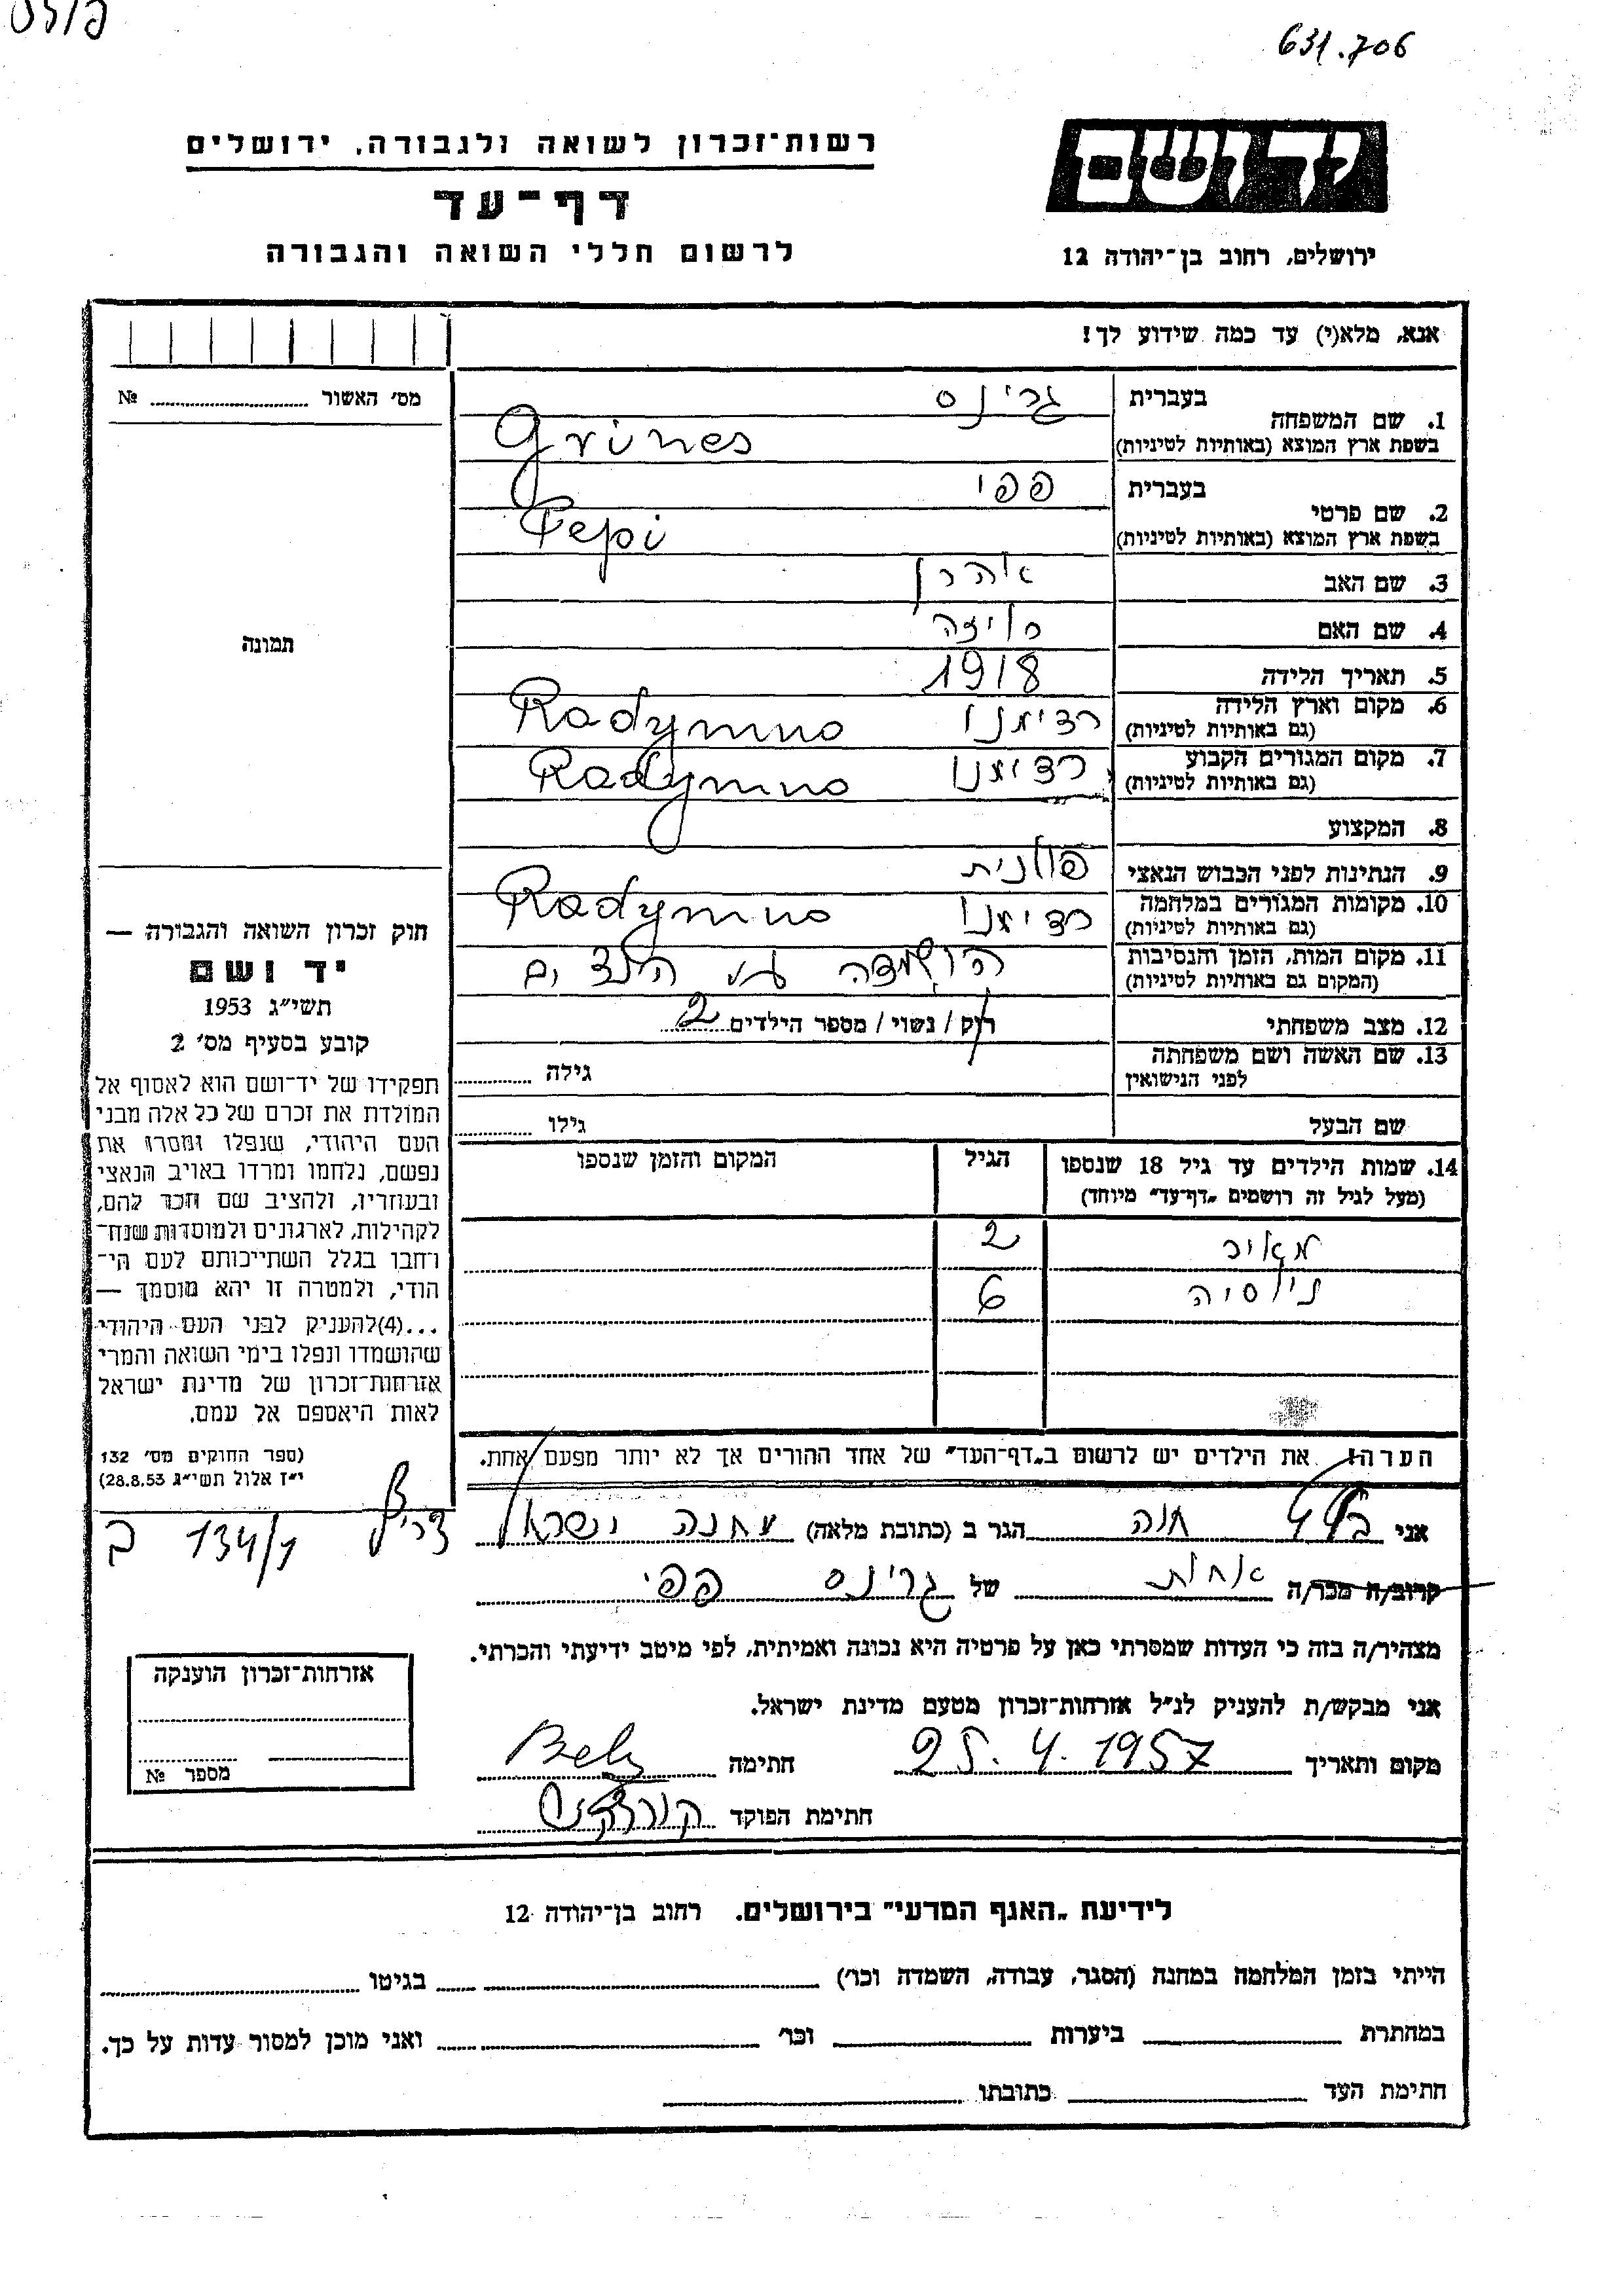 631.706
רשות־זכרון לשואה ולגבורה, ירושלים
יד ושם
דף־עד
לרשום חללי השואה והגבורה
ירושלים, רחוב בן־יהודה 12
אנא, מלא(י) עד כמה שידוע לך!
מס׳ האשור № 
1. שם המשפחה
בעברית גרינס
בשפת ארץ המוצא (באותיות לטיניות) Grünes
2. שם פרטי
בעברית פפי
בשפת ארץ המוצא (באותיות לטיניות) Pepi
3. שם האב אהרן
4. שם האם
5. תאריך הלידה 1918
6. מקום וארץ הלידה רדימנו Radymno
(גם באותיות לטיניות)
7. מקום המגורים הקבוע רדימנו Radymno
(גם באותיות לטיניות)
8. המקצוע
9. הנתינות לפני הכבוש הנאצי פולנית
10. מקומות המגורים במלחמה רדימנו Radymno
(גם באותיות לטיניות)
11. מקום המות, הזמן והנסיבות הושמדה עם הילדים
(המקום גם באותיות לטיניות)
12. מצב משפחתי רוק / נשוי / מספר הילדים 2
13. שם האשה ושם משפחתה
לפני הנישואין
גילה
שם הבעל
גילו
14. שמות הילדים עד גיל 18 שנספו הגיל המקום והזמן שנספו
(מעל לגיל זה רושמים „דף־עד״ מיוחד)
מאיר 2
6
הערה! את הילדים יש לרשום ב„דף־העד״ של אחד ההורים אך לא יותר מפעם אחת.
תמונה
חוק זכרון השואה והגבורה —
יד ושם
תשי״ג 1953
קובע בסעיף מס׳ 2
תפקידו של יד־ושם הוא לאסוף אל
המולדת את זכרם של כל אלה מבני
העם היהודי, שנפלו ומסרו את
נפשם, נלחמו ומרדו באויב הנאצי
ובעוזריו, ולהציב שם וזכר להם,
לקהילות, לארגונים ולמוסדות שנח־
רבו בגלל השתייכותם לעם הי־
הודי, ולמטרה זו יהא מוסמך —
...(4)להעניק לבני העם היהודי
שהושמדו ונפלו בימי השואה והמרי
אזרחות־זכרון של מדינת ישראל
לאות היאספם אל עמם.
(ספר החוקים מס׳ 132
י״ז אלול תשי״ג 28.8.53)
אני חנה הגר ב (כתובת מלאה) מחנה ישראל צריף 134/1 ב
קרוב/ה מכר/ה אחות של גרינס פפי
מצהיר/ה בזה כי העדות שמסרתי כאן על פרטיה היא נכונה ואמיתית, לפי מיטב ידיעתי והכרתי.
אני מבקש/ת להעניק לנ״ל אזרחות־זכרון מטעם מדינת ישראל.
מקום ותאריך 25.4.1957 חתימה
חתימת הפוקד
אזרחות־זכרון הוענקה
מספר №
לידיעת „האגף המדעי״ בירושלים. רחוב בן־יהודה 12
הייתי בזמן המלחמה במחנה (הסגר, עבודה, השמדה וכו׳) בגיטו
במחתרת ביערות וכו׳ ואני מוכן למסור עדות על כך.
חתימת העד כתובתו